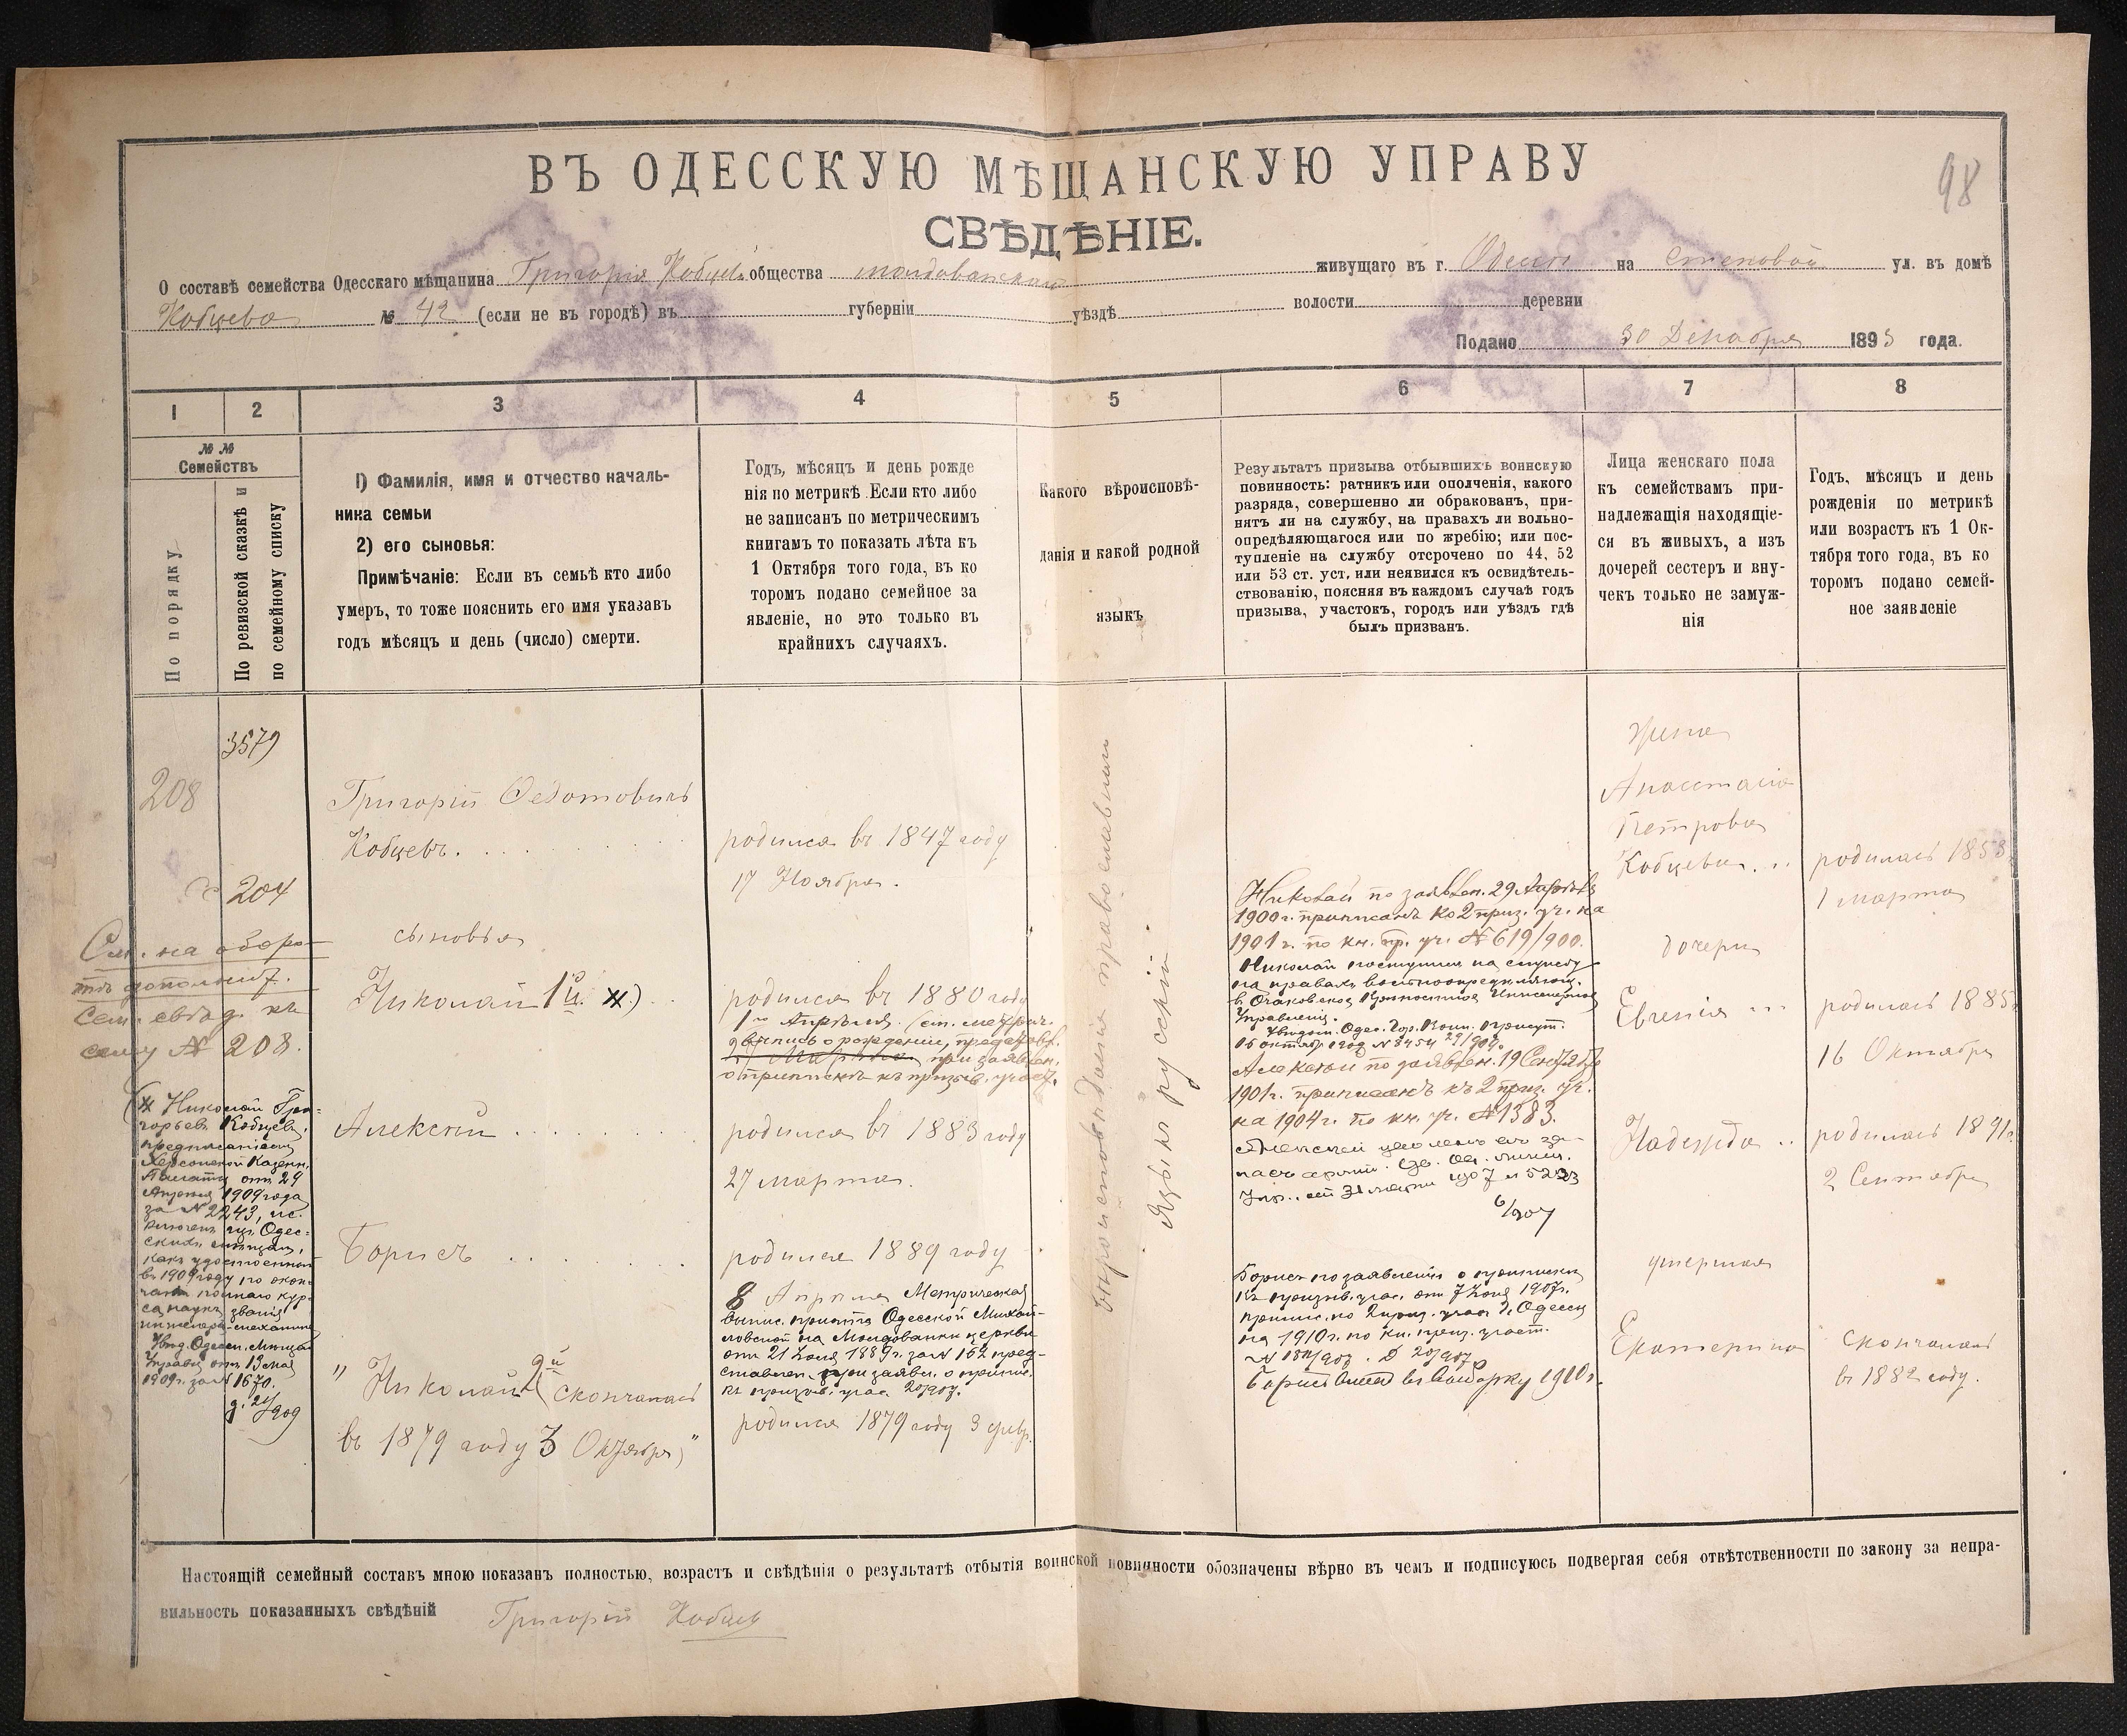 98
ВЪ ОДЕССКУЮ МѢЩАНСКУЮ УПРАВУ
СВѢДѢНІЕ.
О составѣ семейства Одесскаго мѣщанина Григорія Кобцева общества молдаванскаго живущаго въ г. Одессе на Степовой ул. въ домѣ
Кобцева № 42 (если не въ городѣ) въ губерніи уѣздѣ волости деревни
Подано 30 Декабря 1893 года.
1 2 3 4 5 6 7 8
№ №
Семействъ
По порядку
По ревизской сказкѣ и
по семейному списку
1) Фамилія, имя и отчество началь-
ника семьи
2) его сыновья:
Примѣчаніе: Если въ семьѣ кто либо
умеръ, то тоже пояснить его имя указавъ
годъ мѣсяцъ и день (число) смерти.
Годъ, мѣсяцъ и день рожде
нія по метрикѣ. Если кто либо
не записанъ по метрическимъ
книгамъ то показать лѣта къ
1 Октября того года, въ ко
торомъ подано семейное за
явленіе, но это только въ
крайнихъ случаяхъ.
Какого вѣроисповѣ-
данія и какой родной
языкъ
Результатъ призыва отбывшихъ воинскую
повинность: ратникъ или ополченія, какого
разряда, совершенно ли обракованъ, при-
нятъ ли на службу, на правахъ ли вольно-
опредѣляющагося или по жребію; или пос-
тупленіе на службу отсрочено по 44, 52
или 53 ст. уст. или неявился къ освидѣтель-
ствованію, поясняя въ каждомъ случаѣ годъ
призыва, участокъ, городъ или уѣздъ гдѣ
былъ призванъ.
Лица женскаго пола
къ семействамъ при-
надлежащія находящіе-
ся въ живыхъ, а изъ
дочерей сестеръ и вну-
чекъ только не замуж-
нія
Годъ, мѣсяцъ и день
рожденія по метрикѣ
или возрастъ къ 1 Ок-
тября того года, въ ко
торомъ подано семей-
ное заявленіе
3579
208
204
См. на оборо-
тѣ дополнит.
сем. свѣд. къ
сему № 208.
(х Николай Гри-
горьевъ Кобцевъ,
предписаніемъ
Херсонской Казенн.
Палаты отъ 29
Апрѣля 1909 года
за № 2243, ис-
ключенъ изъ Одес-
скихъ мѣщанъ,
какъ удостоенный
въ 1909 году по окон-
чаніи полнаго кур-
са наукъ званія
инженеръ-механика
Увѣд. Одесск. Мѣщан.
Управы отъ 13 мая
1909 г. за № 1670.
Григорій Федотовичъ
Кобцевъ.
сыновья
Николай 1й. х)
Алексѣй
Борисъ
" Николай 2й (скончался
въ 1879 году 3 Октября)"
родился въ 1847 году
17 Ноября.
родился въ 1880 году
1го Апрѣля. (см. метрич.
выпись о рожденіи, представл.
при заявлен.
о припискѣ къ призыв. участ.
родился въ 1883 году
27 марта.
родился 1889 году
8 Апрѣля Метрическая
выпис. причта Одесской Михай-
ловской на Молдаванки церкви
отъ 21 Іюля 1889 г. за № 162 пред-
ставлен. при заявл. о припис.
къ призыв. учас. 20/907.
родился 1879 году 3 февр.
вѣроисповѣданія православнаго
Языкъ русскій.
Николай по заявлен. 29
1900 г. приписанъ ко 2 приз. уч. на
1901 г. по кн. пр. уч. № 619/900.
Николай поступилъ на службу
на правахъ вольноопредѣляющ.
в Очаковское Крѣпостное Инженерное
Управленіе.
Алексѣй по заявлен. 19 Сентября
1901 г. приписанъ къ 2 приз. уч.
на 1904 г. по кн. уч. № 1383.
Алексѣй уволенъ въ за-
пасъ арміи.
6/907
Борисъ по заявленію о припискѣ
къ призыв. учас. отъ 7 Іюня 1907 г.
припис. ко 2 приз. участ. г. Одессы
на 1910 г. по кн. приз. участ.
Борисъ внесенъ въ выборку 1910 г.
жена
Анастасія
Петровна
Кобцева
дочери
Евгенія
Надежда
умершая
Екатерина
родилась 1853
1 марта
родилась 1885 г.
16 Октября
родилась 1891 г.
2 Сентября
скончалась
въ 1882 году.
Настоящій семейный составъ мною показанъ полностью, возрастъ и свѣдѣнія о результатѣ отбытія воинской повинности обозначены вѣрно въ чемъ и подписуюсь подвергая себя отвѣтственности по закону за непра-
вильность показанныхъ свѣдѣній Григорій Кобцев